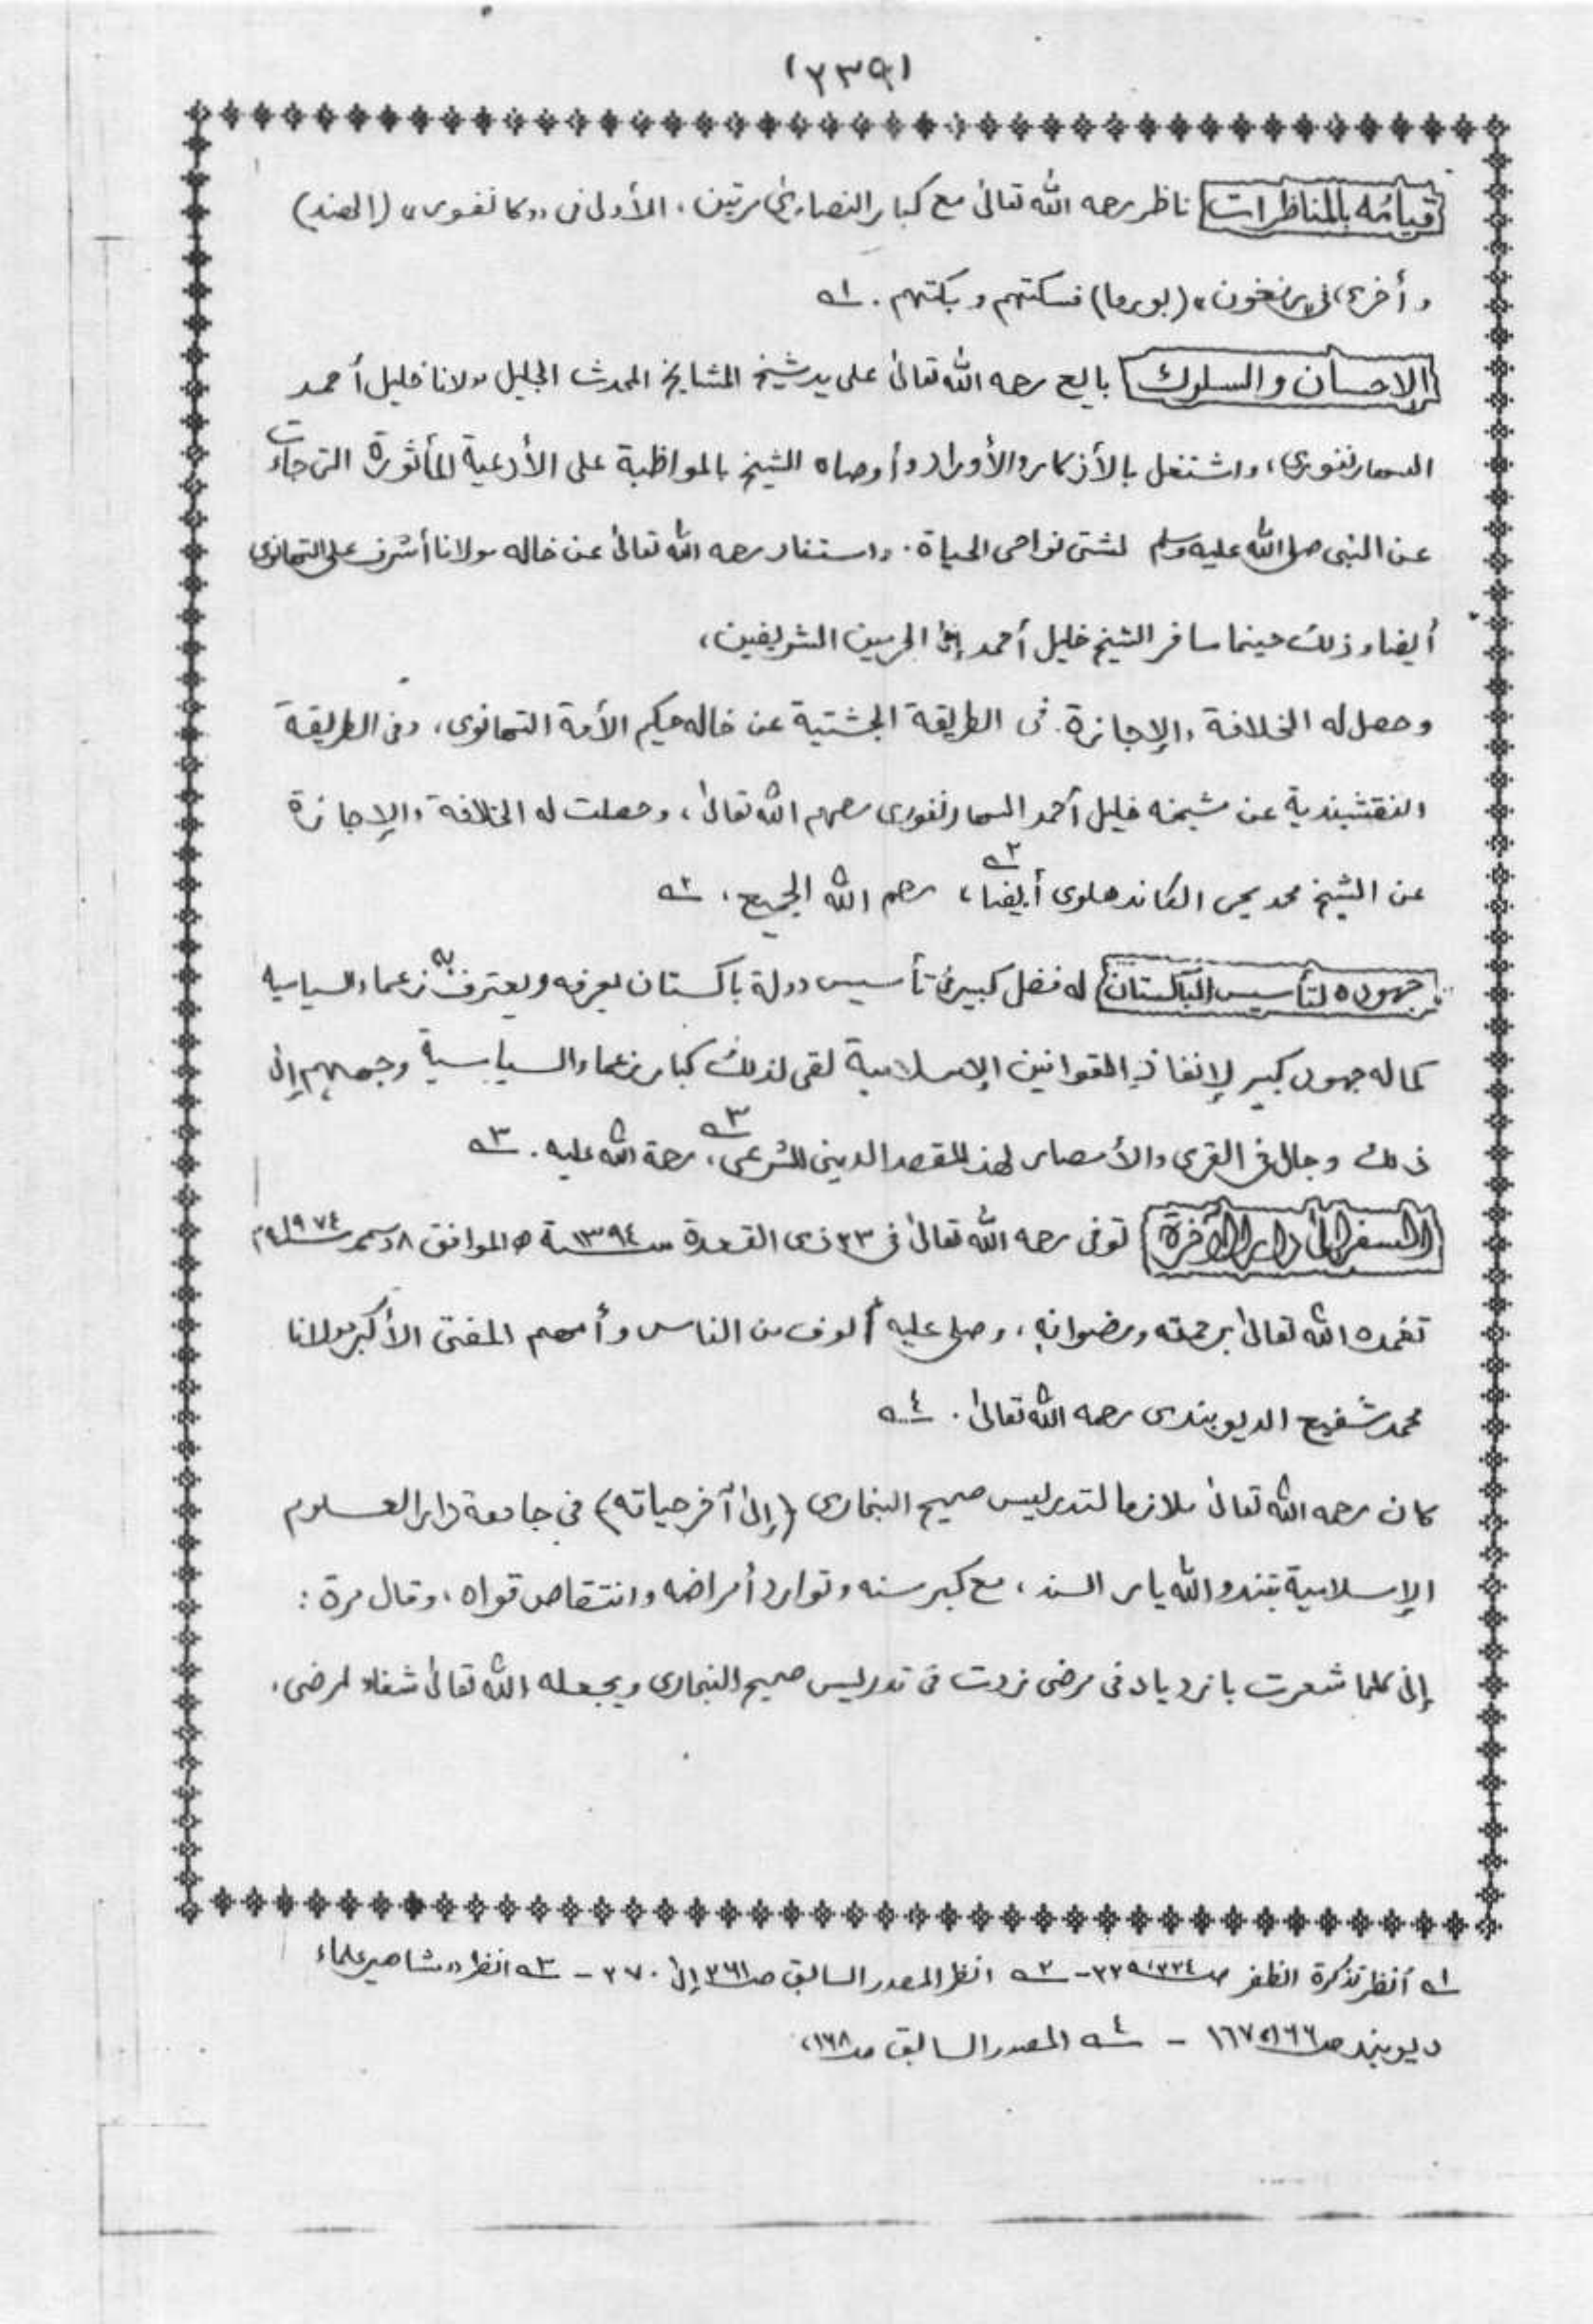 (٢٣٩)
قيامه بالمناظرات ناظر رحمه الله تعالى مع كبار النصارى مرتين، الأولى في ,,كانفور،، (الهند)
وأخرى في ,,رنغون،، (بورما) فسكتهم وبكتهم . ١ـه
الإحسان والسلوك بايع رحمه الله تعالى على يد شيخ المشايخ المحدث الجليل مولانا خليل أحمد
السهارنفوري، واشتغل بالأذكار والأوراد وأوصاه الشيخ بالمواظبة على الأدعية المأثورة التي جاءت
عن النبي صلى الله عليه وسلم لشتى نواحي الحياة . واستفاد رحمه الله تعالى عن خاله مولانا أشرف علي التهانوي
أيضا وذلك حينما سافر الشيخ خليل أحمد إلى الحرمين الشريفين،
وحصل له الخلافة والإجازة في الطريقة الجشتية عن خاله حكيم الأمة التهانوي، وفي الطريقة
النقشبندية عن شيخه خليل أحمد السهارنفوري رحمهم الله تعالى، وحصلت له الخلافة والإجازة
عن الشيخ محمد يحيى الكاندهلوي أيضا ٢ـه، رحم الله الجميع . ٢ـه
جهوده لتأسيس الباكستان له فضل كبير في تأسيس دولة باكستان يعرفه ويعترف به زعماء السياسية
كما له جهود كبير لإنفاذ القوانين الإسلامية لقي لذلك كبار زعماء السياسية وجمعهم إلى
ذلك وجال في القرى والأمصار لهذا المقصد الديني الشرعي ٣ـه، رحمة الله عليه . ٣ـه
السفر إلى دار الآخرة توفي رحمه الله تعالى في ٢٣ ذي القعدة سنة ١٣٩٤ ه الموافق ٨ دسمبر ١٩٧٤م
تغمده الله تعالى برحمته ورضوانه، وصلى عليه ألوف من الناس وأمهم المفتي الأكبر مولانا
محمد شفيع الديوبندي رحمه الله تعالى . ٤ـه
كان رحمه الله تعالى ملازما لتدريس صحيح البخاري (إلى آخر حياته) في جامعة دار العلوم
الإسلامية بتندو الله يار السند، مع كبر سنه وتوارد أمراضه وانتقاص قواه، وقال مرة :
إني كلما شعرت بازدياد في مرضي زدت في تدريس صحيح البخاري ويجعله الله تعالى شفاء لمرضي،
١ـه أنظر تذكرة الظفر صـ ٢٣٤، ٢٣٩ - ٢ـه انظر المصدر السابق صـ ٣٦١ إلى ٣٧٠ - ٣ـه انظر ,,مشاهير علماء
ديوبند صـ ١٦٦، ١٦٧ - ٤ـه المصدر السابق صـ ١٦٨،